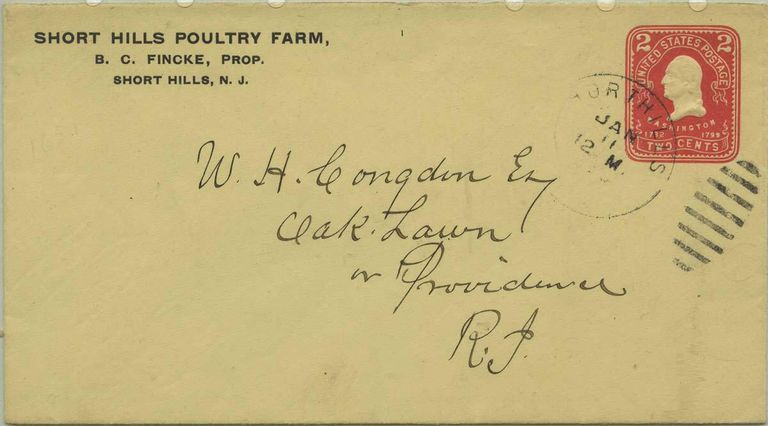 SHORT HILLS POULTRY FARM,
B. C. FINCKE, PROP.
SHORT HILLS, N. J.
2 UNITED STATES POSTAGE 2
WASHINGTON
1732 1799
TWO CENTS
JAN
11
12 M.
W. H. Congdon Esq
Oak Lawn
or Providence
R.I.